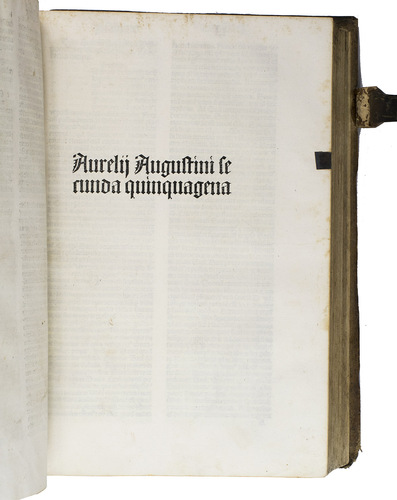 Aurelij Augustini se
cunda quinquagena